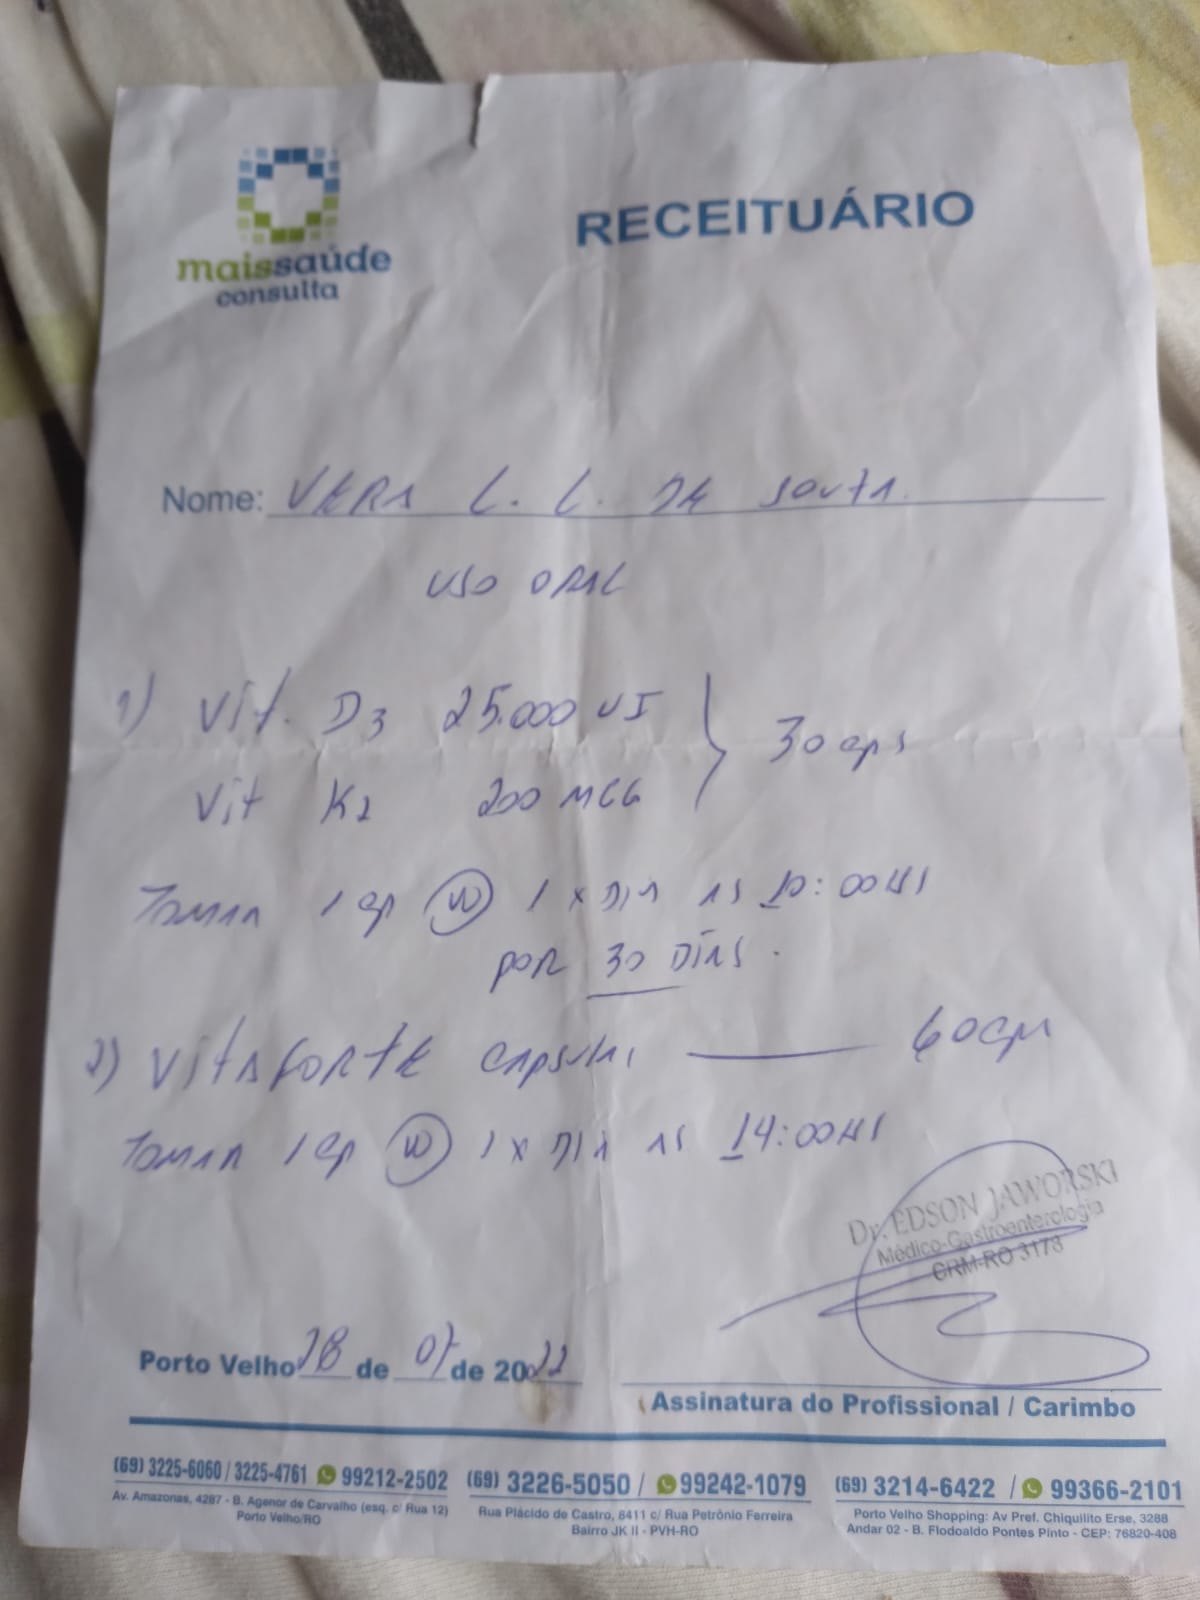 maissaúde
consulta
RECEITUÁRIO
Nome: VERA L. L. DE SOUZA.
USO ORAL
1) Vit. D3 25.000 UI } 30 cps
Vit K2 200 MCG
Tomar 1 cp VO 1 x DIA AS 10:00 HS
por 30 DIAS.
2) VITAFORTE CAPSULAS 60 cps
Tomar 1 cp VO 1 x DIA AS 14:00 HS
Dr. EDSON JAWORSKI
Médico-Gastroenterologia
CRM-RO 3173
Porto Velho 28 de 07 de 2022
Assinatura do Profissional / Carimbo
(69) 3225-6060 / 3225-4761 99212-2502
Av. Amazonas, 4287 - B. Agenor de Carvalho (esq. c/ Rua 12)
Porto Velho/RO
(69) 3226-5050 / 99242-1079
Rua Plácido de Castro, 8411 c/ Rua Petrônio Ferreira
Bairro JK II - PVH-RO
(69) 3214-6422 / 99366-2101
Porto Velho Shopping: Av Pref. Chiquilito Erse, 3288
Andar 02 - B. Flodoaldo Pontes Pinto - CEP: 76820-408